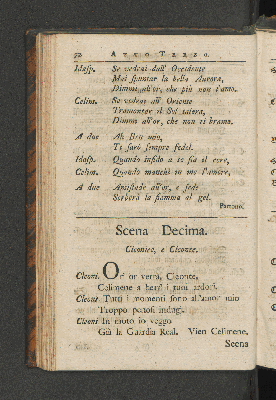 52 ATTO TERZO.
Idasp. Se vedrai dall' Occidente
Mai spuntar la bella Aurora,
Dimmi all'or, che più non t'amo.
Celim. Se vedrai all' Oriente
Tramontar il Sol talora,
Dimm all'or, che non ti bramo.
A due Ah Ben mio,
Ti sarò sempre fedel.
Idasp. Quando infido a te sia il core,
Celim. Quando manchi in me l'amore,
A due Amistade all'or, e fede
Serberà la fiamma al gel.
Partono.
Scena Decima.
Cleonte.
Or or verrà,
Celimene a i tuoi ardori.
Tutti i momenti sono all'amor mio
Troppo penosi indugj.
In moto io veggo
Già la Guardia Real. Vien Celimene,
Scena